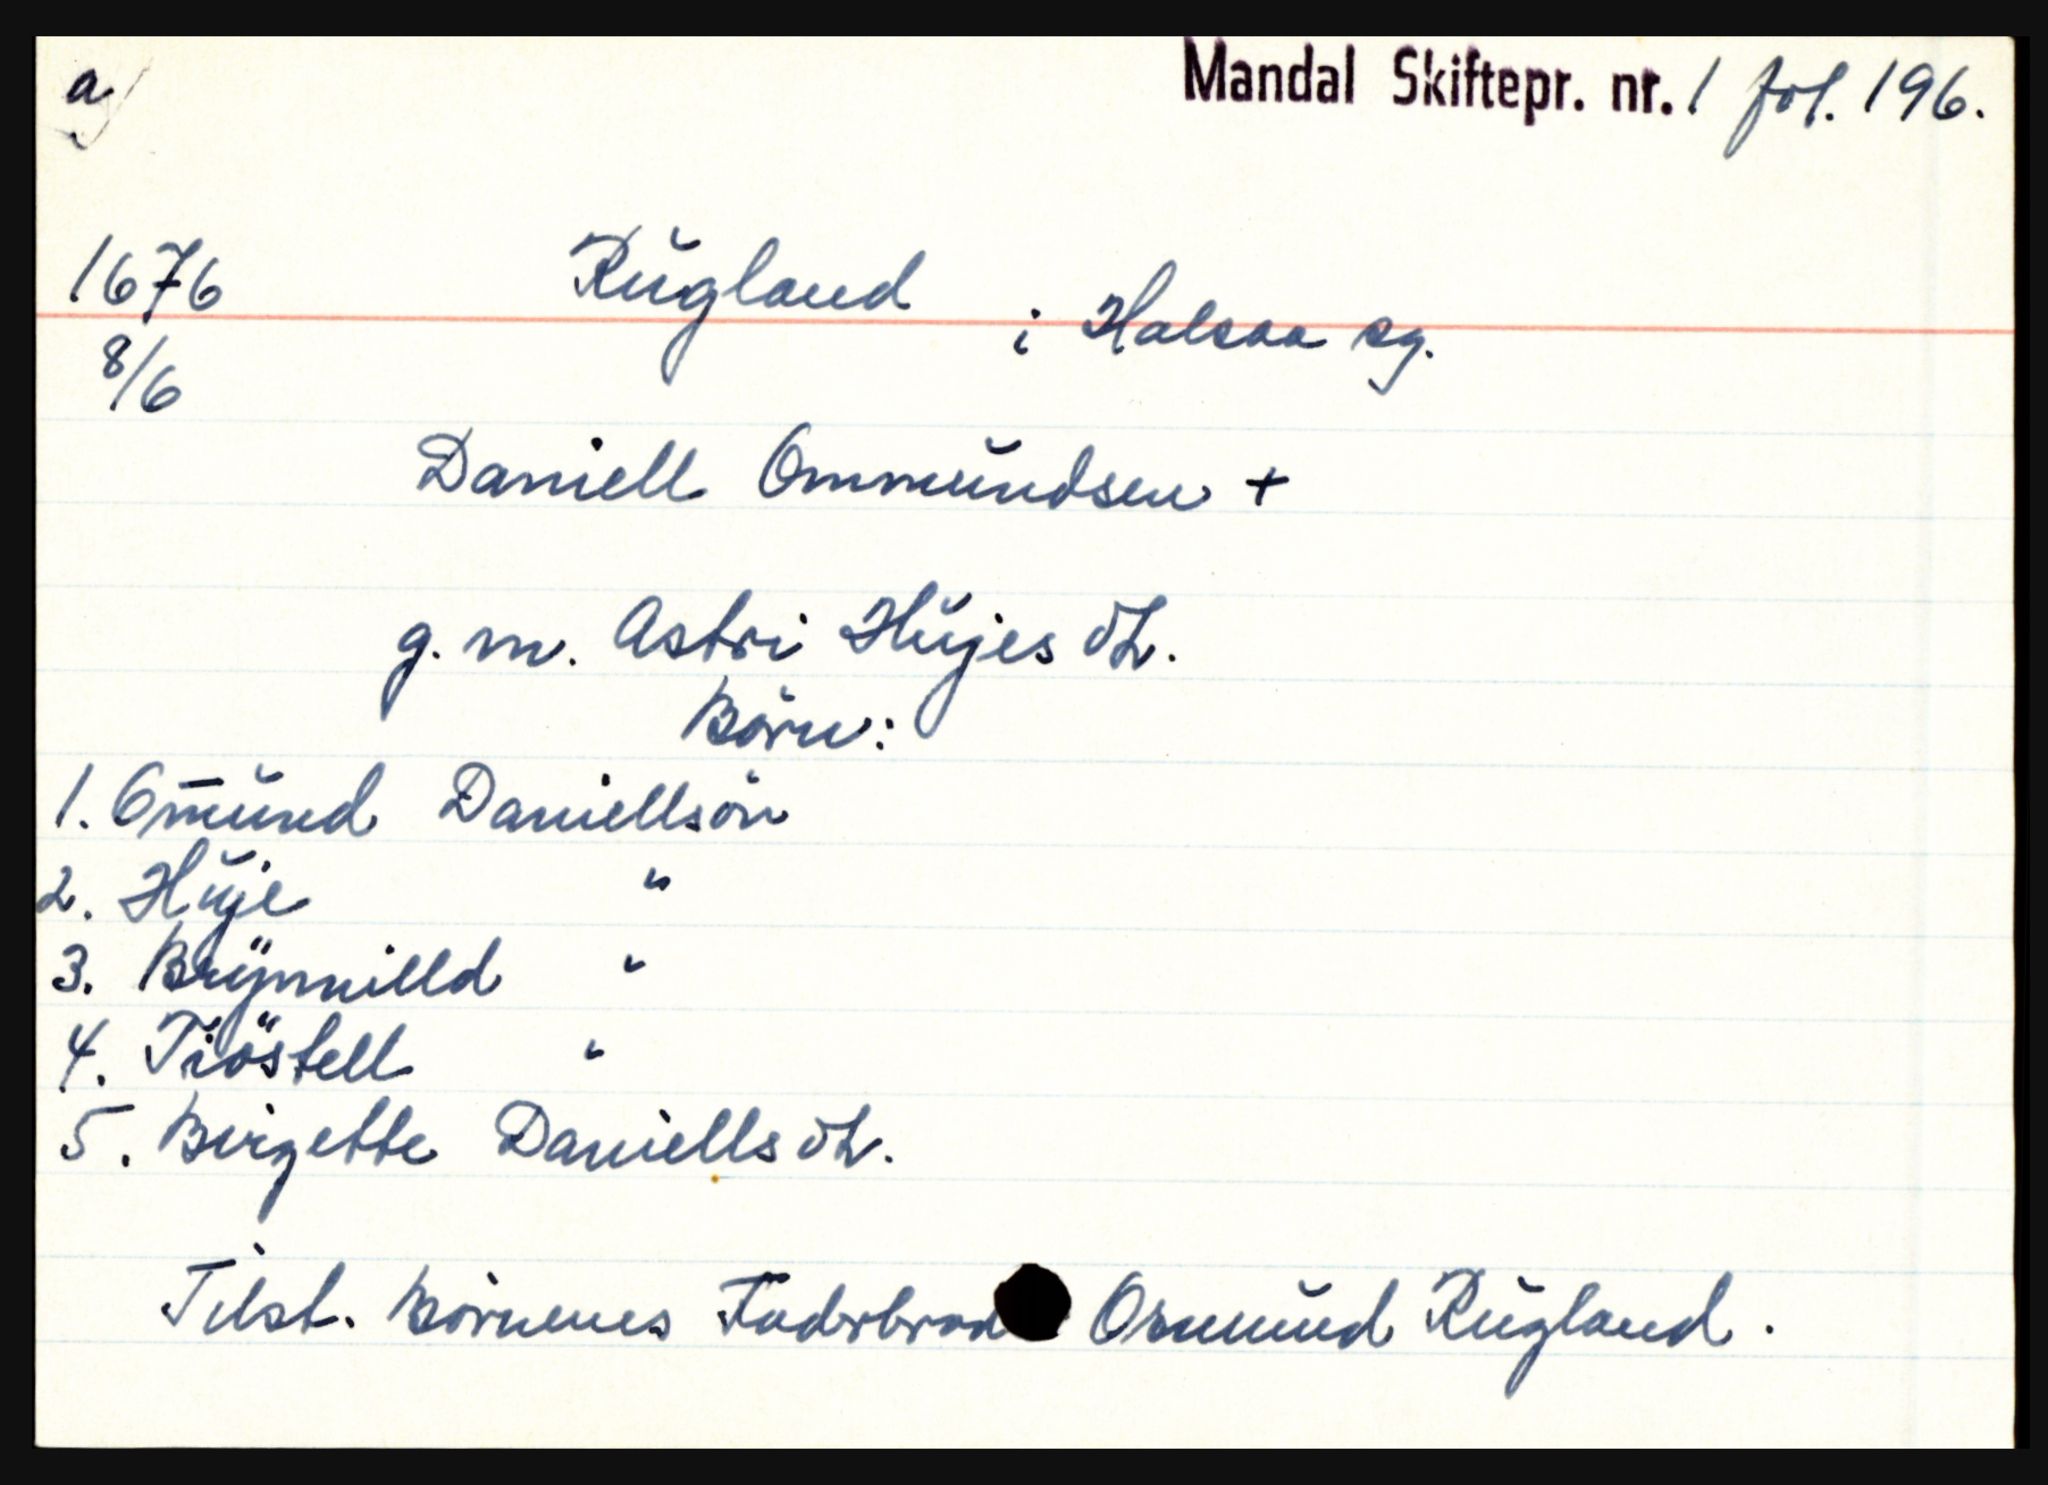 a
Mandal Skiftepr. nr. 1 fol. 196.
1676 Rŭgland i Halsaa sg.
8/6
Daniell Ommŭndsen +
g. m. Astri Hŭjes dt.
Börn:
1. Om̄ŭnd Daniellsön
2. Hŭje "
3. Brÿnnilld "
4. Tiöstell "
5. Birgette Daniells dt.
Tilst. Börnenes Faderbrod Osmŭnd Rŭgland.